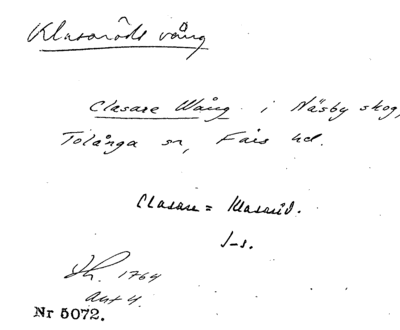 Klasaröds vång
Clasare Wång. i Näsby skog,
Tolånga sn, Färs hd.
Clasare = Klasaröd.
J-s.
1764
akt 4.
Nr 5072.